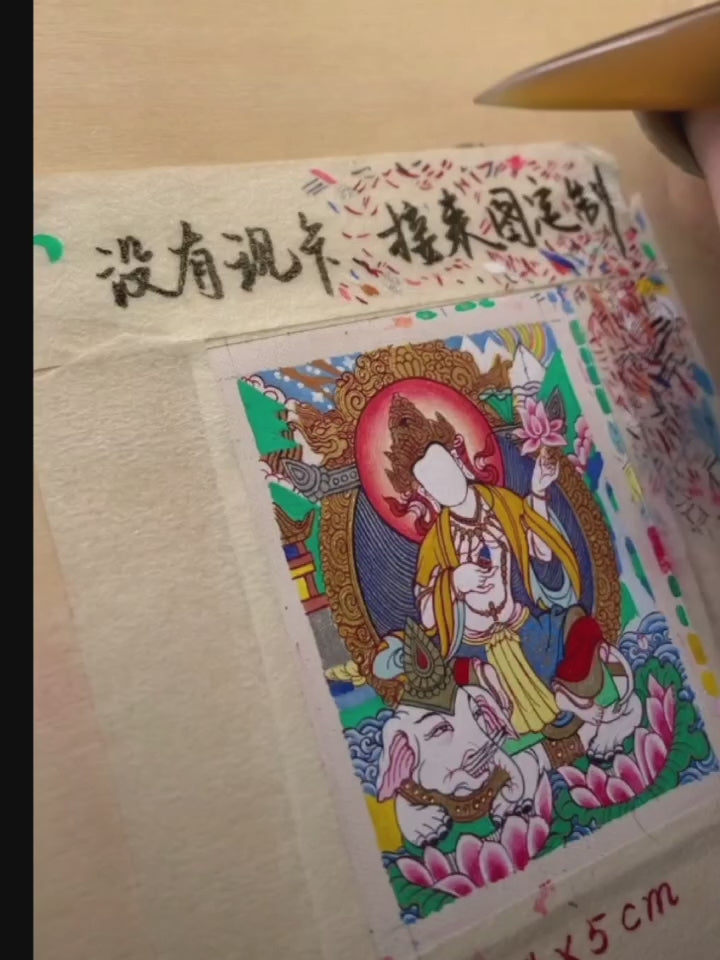 没有现卡 接来图定制
x5cm